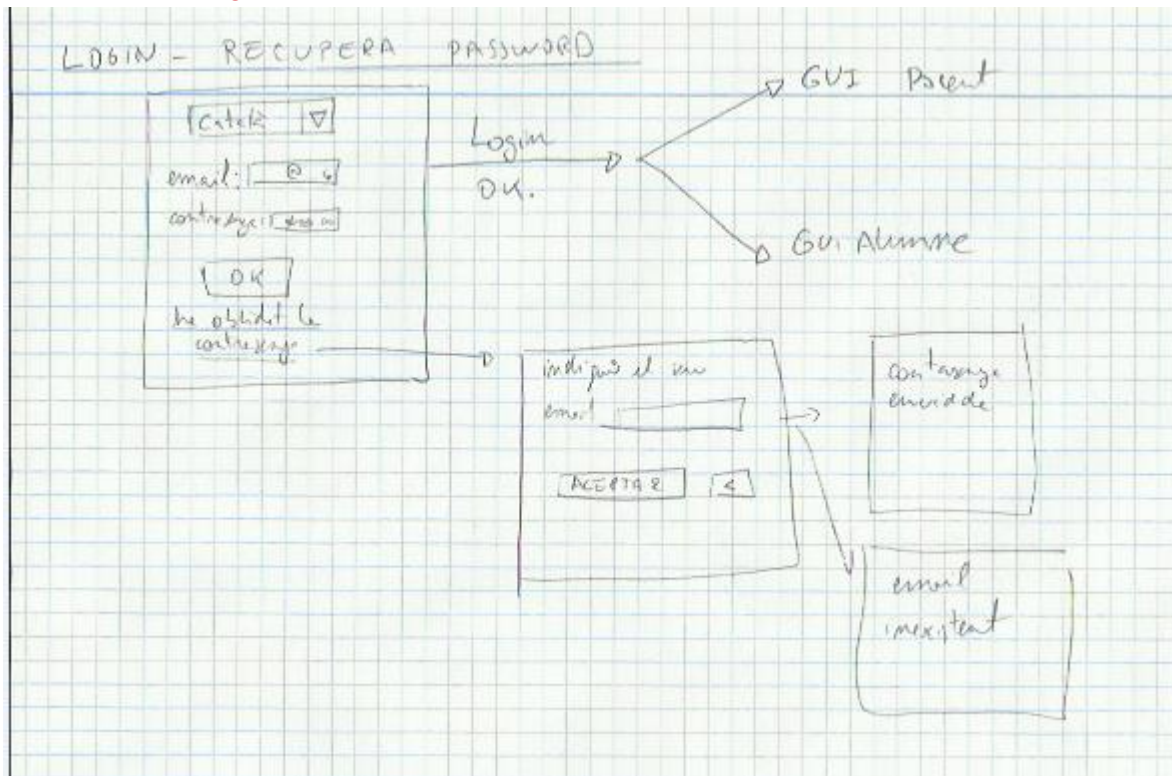 LOGIN - RECUPERA PASSWORD
Català
email: @
contrasenya:
OK
he oblidat la
contrasenya
Login
OK.
GUI
GUI Alumne
indiqui el seu
email
ACEPTAR <
contrasenya
enviada
email
inexistent